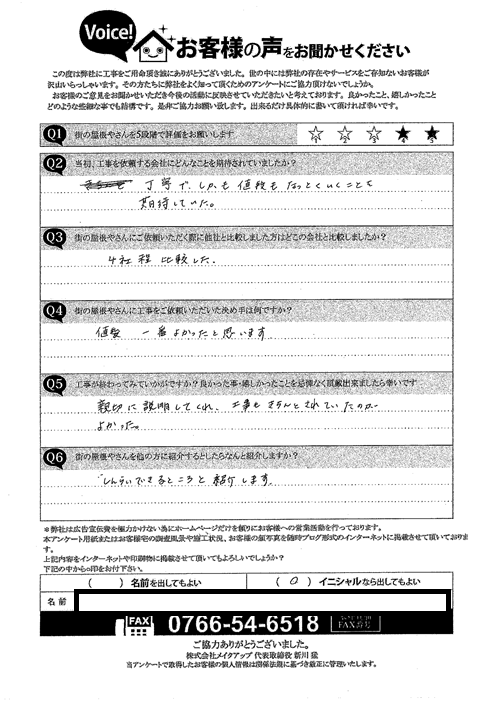 Voice!
お客様の声をお聞かせください
この度は弊社に工事をご用命頂き誠にありがとうございました。世の中には弊社の存在やサービスをご存知ないお客様が
沢山いらっしゃいます。その方たちに弊社をよく知って頂くためのアンケートにご協力頂けないでしょうか。
お客様のご意見をお聞かせいただき今後の活動に反映させていただきたいと考えております。良かったこと、嬉しかったこと
どのような些細な事でも結構です。是非ご協力お願い致します。出来るだけ具体的に書いて頂ければ幸いです。
Q1 街の屋根やさんを5段階で評価をお願いします ☆ ☆ ☆ ★ ★
Q2 当初、工事を依頼する会社にどんなことを期待されていましたか?
丁寧で しかも 値段も なっとくいくことを
期待していた。
Q3 街の屋根やさんにご依頼いただく際に他社と比較しました方はどこの会社と比較しましたか?
4社程 比較した。
Q4 街の屋根やさんに工事をご依頼いただいた決め手は何ですか?
値段 一番よかったと思います
Q5 工事が終わってみていかがですか?良かった事・嬉しかったことを忌憚なく記載出来ましたら幸いです
親切に説明してくれ、工事もきちんとされていたのが
よかった。
Q6 街の屋根やさんを他の方に紹介するとしたらなんと紹介しますか?
しんらいできるところと紹介します
*弊社は広告宣伝費を極力かけない為にホームページだけを頼りにお客様への営業活動を行っております。
本アンケート用紙またはお客様宅の調査風景や施工状況、お客様の顔写真を随時ブログ形式のインターネットに掲載させて頂いております。
上記内容をインターネットや印刷物に掲載させて頂いてもよろしいでしょうか?
下記の中から○印をお付下さい。
( ) 名前を出してもよい ( ○ ) イニシャルなら出してもよい
名前
FAX 0766-54-6518
ご協力ありがとうございました。
株式会社メイクアップ 代表取締役 新川 猛
当アンケートで取得したお客様の個人情報は関係法規に基づき厳正に管理いたします。